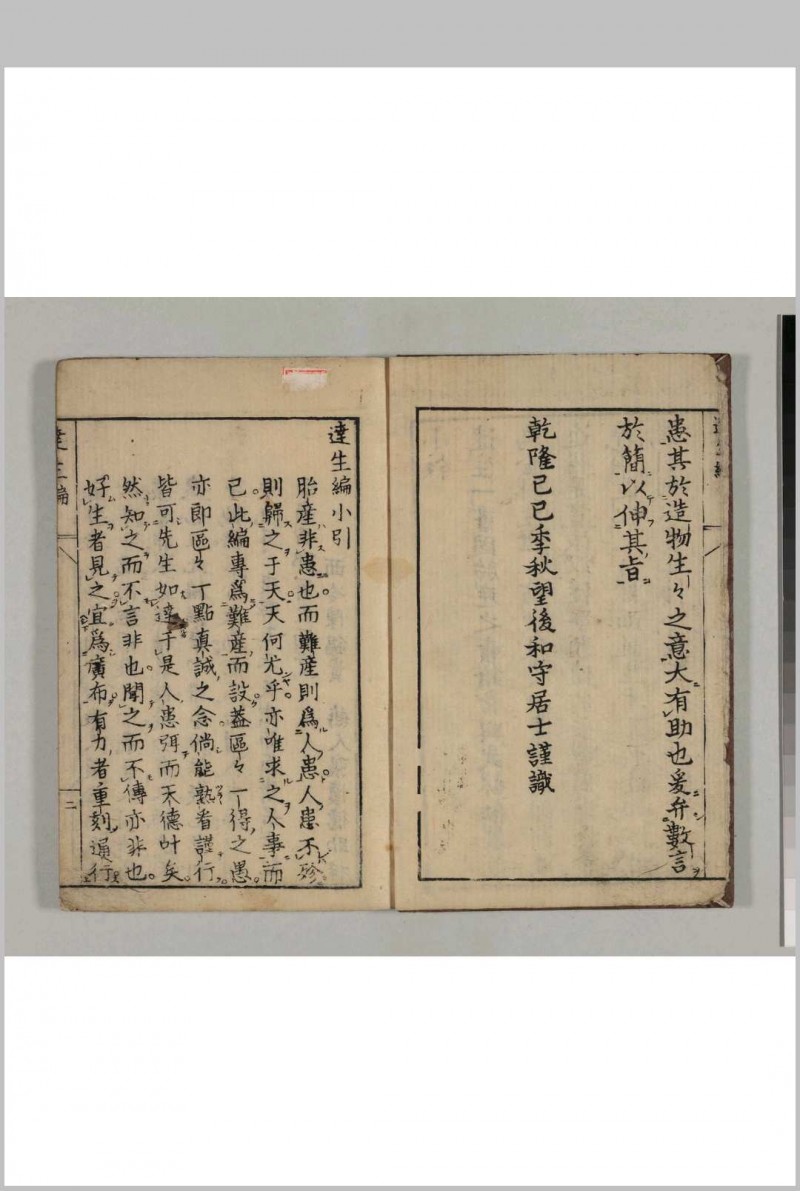 患其於造物生々之意大有助也爰弁數言
於簡以伸其旨
乾隆己巳季秋望後和守居士謹識
達生編小引
胎産非患也而難産則爲人患人患不殄
則歸之于天天何尤乎亦唯求之人事而
已此編專爲難産而設蓋區々丁得之愚
亦即區々丁點真誠之念倘能熟看謹行
皆可先生如達于是人患弭而天德叶矣
然知之而不言非也聞之而不傳亦非也
好生者見之宜爲廣布有力者重刻通行
達生編
二